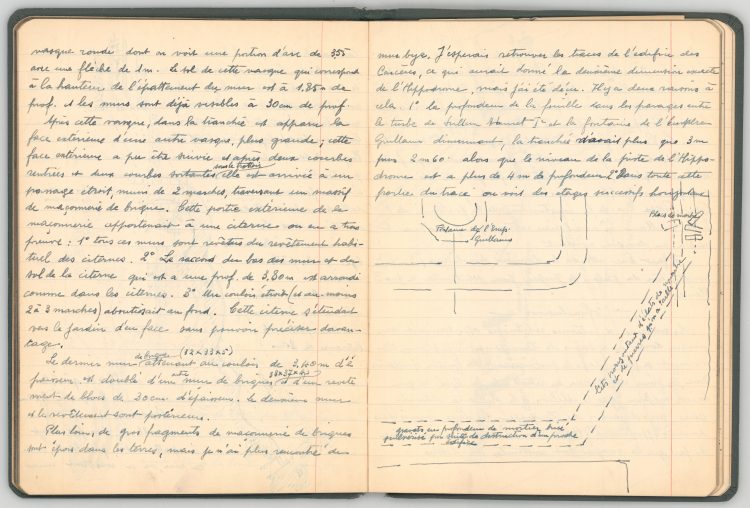 vasque ronde dont on voit une portion d'arc de 3,55
avec une flèche de 1m. Le sol de cette vasque qui correspond
à la hauteur de l'épattement du mur est à 1.85m de
prof. et les murs sont déjà visibles à 30cm de prof.
Après cette vasque, dans la tranchée est apparue la
face extérieure d'une autre vasque, plus grande; cette
face extérieure a pu être suivie et après deux courbes
rentrées et deux courbes sortantes, elle est arrivée à un
passage étroit, muni de 2 marches, traversant un massif
de maçonnerie de brique. Cette partie extérieure de la
maçonnerie appartenait à une citerne on en a trois
preuves: 1° tous ces murs sont revêtus du revêtement habi-
tuel des citernes. 2° Le raccord du bas des murs et du
sol de la citerne qui est a une prof. de 3,30m est arrondi
comme dans les citernes. 3° Un couloir étroit (et au moins
2 à 3 marches) aboutissait au fond. Cette citerne s'étendait
vers le jardin d'en face sans pouvoir préciser davan-
tage.
de brique (32x33x5)
Le dernier mur attenant au couloir de 2,40m d'é-
paisseur est doublé d'un autre mur de briques et d'un revête
ment de blocs de 20cm d'épaisseur. le deuxième mur
et le revêtement sont postérieurs.
Plus loin, de gros fragments de maçonnerie de briques
sont épars dans les terres, mais je n'ai plus rencontré de
mur byz. J'esperais retrouver les traces de l'édifice des
Carceres, ce qui aurait donné la deuxième dimension exacte
de l'Hippodrome, mais j'ai été déçu. Il y a deux raisons à
cela. 1° la profondeur de la fouille dans les parages entre
le turbé de Sultan Ahmet Ier et la fontaine de l'empereur
Guillaume diminuant, la tranchée n'avait plus que 3m
puis 2m60 alors que le niveau de la piste de l'Hippo-
drome est a plus de 4m de profondeur 2° Dans toute cette
partie du tracé on voit des étages successifs horizontaux
Fontaine de l'Emp.
Guillaume
Lits horizontaux d'éclats de marbre
et de pierres
gravats, en profondeur de mortier brisé
pulvérisé puis suite de destruction d'un proche
édifice